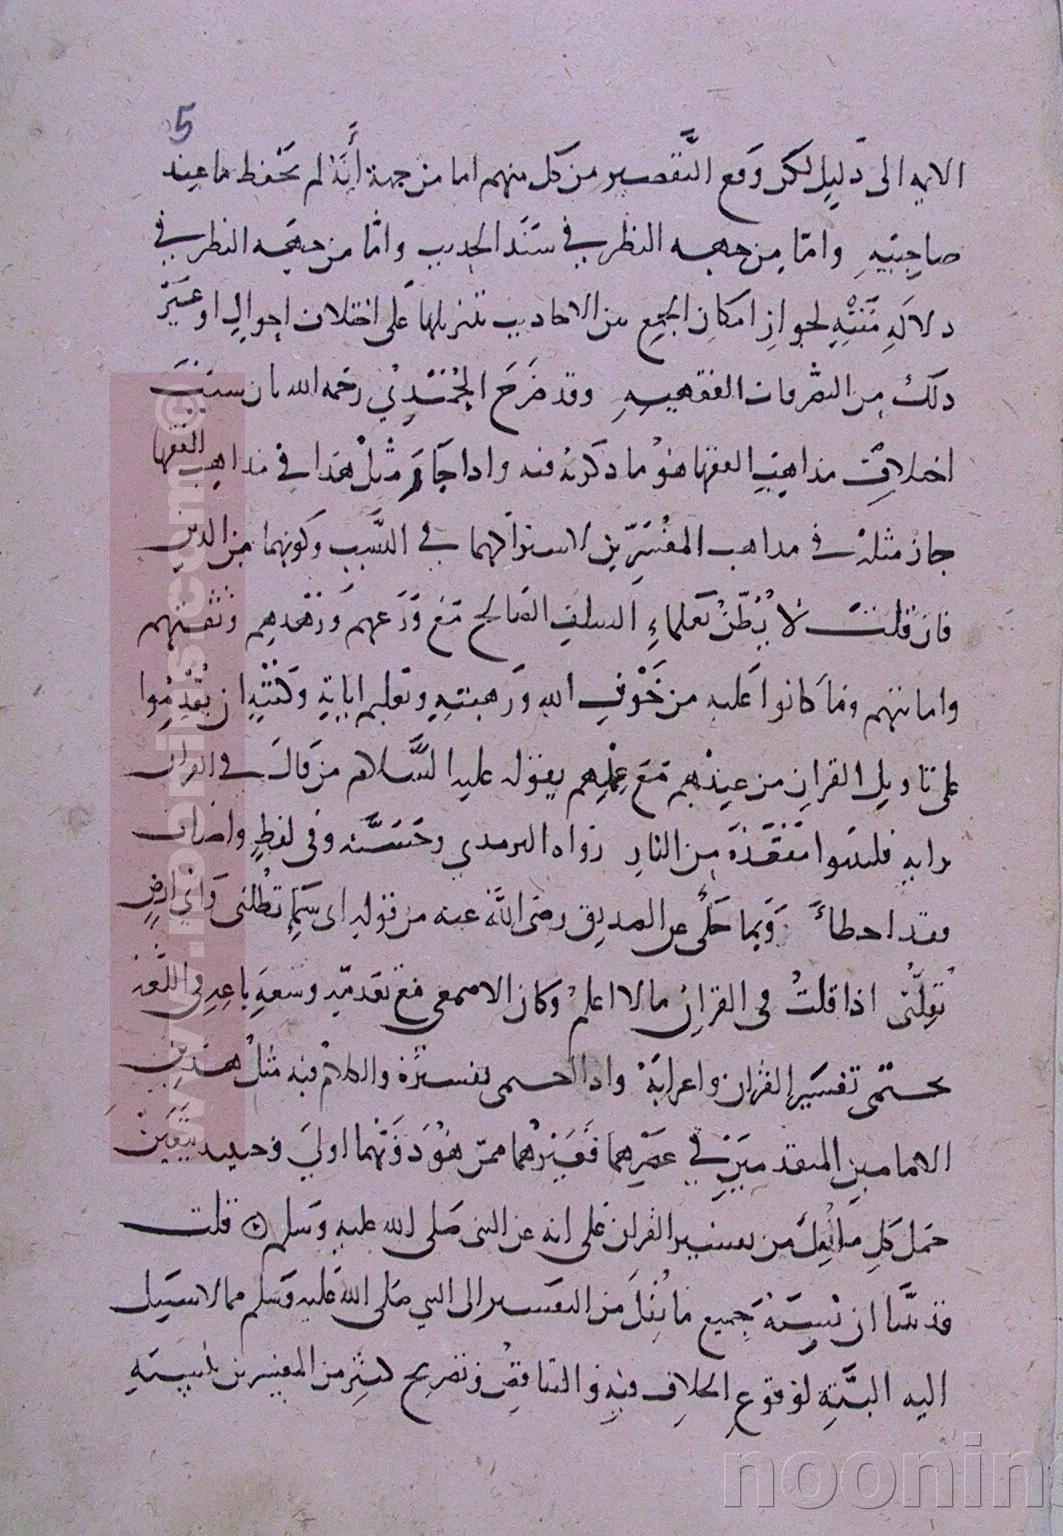 5
الايه الى دَليل لكن وَقع التَّقصير من كل منهم اما من جهة أَنَّهُ لم يَحْفظ ما عند
صاحِبَيهِ وامّا مِن جهه النظر في سَنَد الحديث وامّا من جهَه النظر في
دلالَهِ مَتنِهِ لجوازِ امكانِ الجمع بين الاحاديث بتنزيلها عَلى اختلاف احوالِ او غَيرِ
ذلك مِن التصرفات الفقهيهِ وقد صَرَحَ الجُنَدِيُّ رَحمه الله بان سببَ
اختلافِ مذاهِبِ الفقها هُوَ ما ذكرته فيه واذا جَازَ مثلُ هذا في مذاهب الفقها
جاز مثلهُ في مذاهب المفَسِّرِين لاستوآئهما في السَّبب وكونهما من الدين
فان قلتَ لا يُظَنُّ بعلماءِ السلفِ الصَالح مَعَ وَرَعهم وَزهدهِم وَثقتهم
وامانتهم وَمَا كانوا عَليه من خَوْفِ اللهِ وَرهبتهِ وتعليم اياتِهِ وَكتُبِهِ ان يُقْدِمُوا
على تاويل القرانِ من عِندهِم مَعَ عِلمِهم بقوله عليه السَّلام مَن قالَ في القران
برايهِ فليتبوا مقعَدَهُ مِن النارِ رَواه الترمذي وحَسَّنه وفى لفظٍ واصاب
فقد اخطاءَ وَبما حُكىَ عن الصديق رضى اللَّه عنه من قوله اى سَمَاءٍ تُظلنى وَاىُ ارضٍ
تُقِلّنى اذا قلتُ فى القرانِ ما لا اعلمُ وكان الاصمعى مَعَ تقدمهِ وسَعَهِ باعِهِ في اللّغه
يحتمى تفسَيَر القران واعرابهُ واذا احتمى تفسيَرهُ والكلامَ فيه مثلُ هذينِ
الامامينِ المتقدمَينِ في عصرِهما فَغيرُهما ممن هُوَ دُونَهما اولىَ وَحينئد يَتَعَينُ
حَمل كلِ ما نُقِلَ من تفسير القران عَلى انه عن النبى صَلى الله عليه وَسَلم ۞ قلت
قد بيَّنا ان نِسبَةَ جَميع مَا نُقِلَ من التفسير الى النبي صَلى الله عَليه وَسَلم مما لا سَبيل
اليه البَتَّه لوُقوعِ الخلافِ فيهِ والتناقضِ وَتصريح كثير من المفسرين بنسبَتِهِ